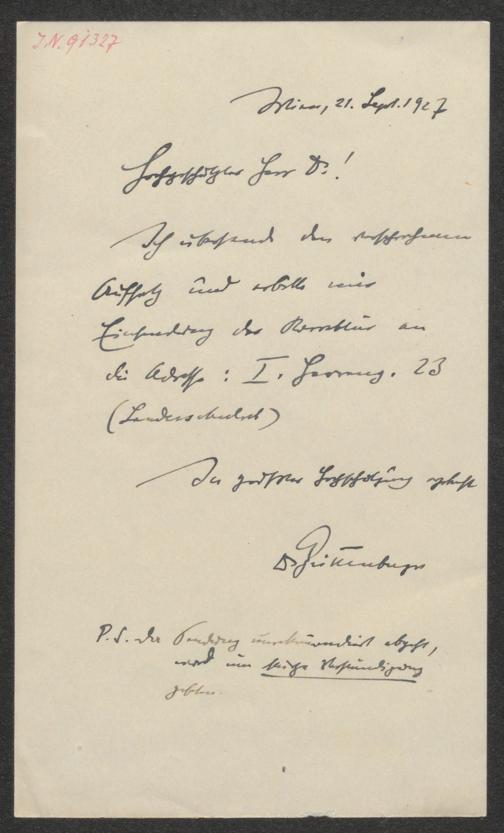 J.N. 91327
Wien, 21. Sept. 1927
Hochgeschätzter Herr Dr.!
Ich übersende den versprochenen
Aufsatz und erbitte mir
Einsendung der Korrektur an
die Adresse: I. Herreng. 23
(Landesschulrat)
In größter Hochschätzung ergebenst
Dr
P.S. Da Sendung unrekommandiert abgeht,
wird um Verständigung
gebeten.